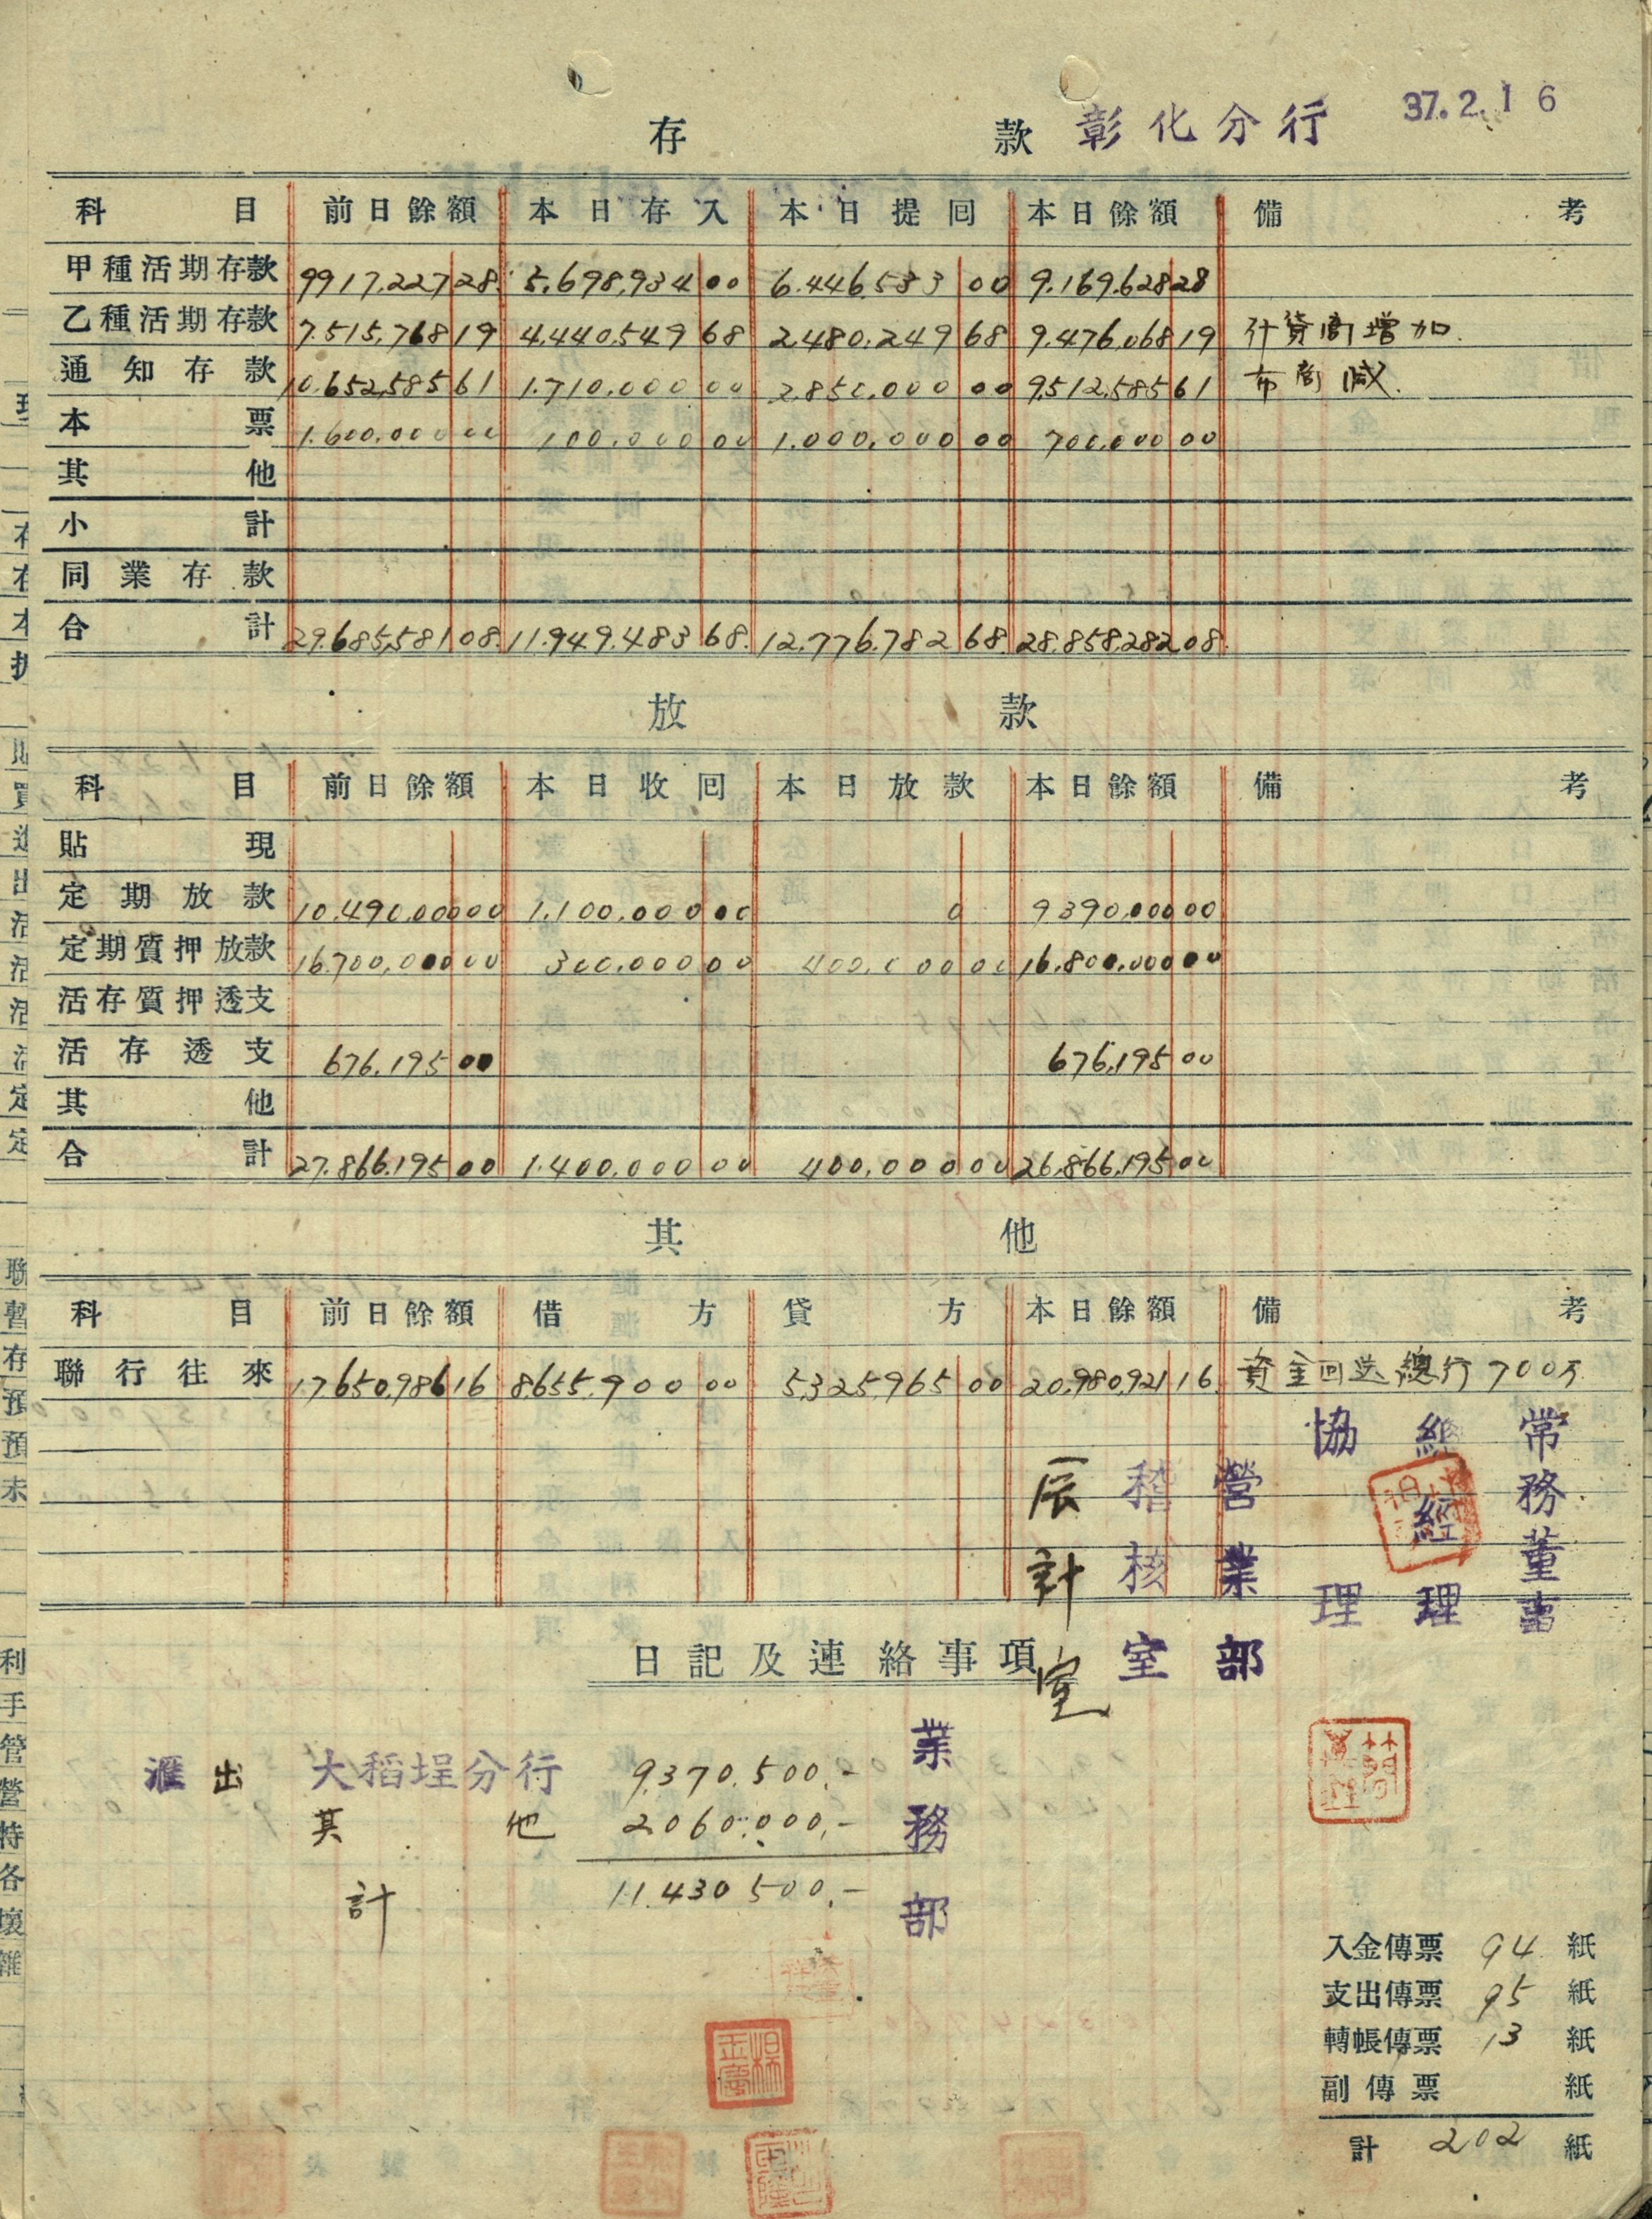 37.2.16
存款 彰化分行
科目 前日餘額 本日存入 本日提回 本日餘額 備考
甲種活期存款 9917,227 28 5,698,934 00 6,446,533 00 9,169,628 28
乙種活期存款 7,515,768 19 4,440,549 68 2,480,249 68 9,476,068 19 什貨商增加
通知存款 10,652,585 61 1,710,000 00 2,850,000 00 9,512,585 61 布商減
本票 1,600,000 00 100,000 00 1,000,000 00 700,000 00
其他
小計
同業存款
合計 29,685,581 08 11,949,483 68 12,776,782 68 28,858,282 08
放款
科目 前日餘額 本日收回 本日放款 本日餘額 備考
貼現
定期放款 10,490,000 00 1,100,000 00 0 9390,000 00
定期質押放款 16,700,000 00 300,000 00 400,000 00 16,800,000 00
活存質押透支
活存透支 676,195 00 676,195 00
其他
合計 27,866,195 00 1,400,000 00 400,000 00 26,866,195 00
其他
科目 前日餘額 借方 貸方 本日餘額 備考
聯行往來 17,650,986 16 8,655,900 00 5,325,965 00 20,980,921 16 資金回送總行700万
常務董事
總經理
協理
營業部
稽核室
計室
日記及連絡事項
業務部
滙出 大稻埕分行 9,370,500.-
其他 2,060,000.-
計 11,430,500.-
入金傳票 94 紙
支出傳票 95 紙
轉帳傳票 13 紙
副傳票 紙
計 202 紙